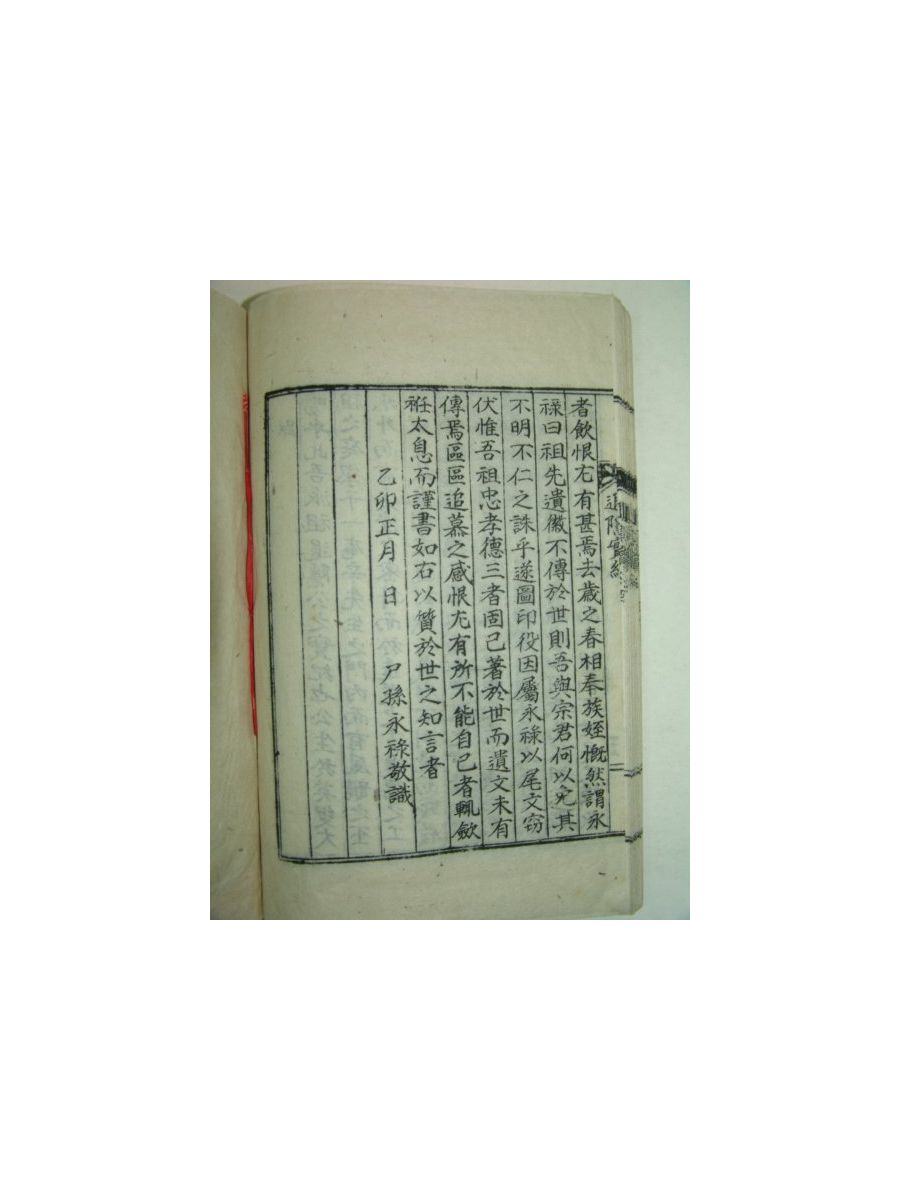 者飮恨尤有甚焉去歲之春相奉族姪慨然謂永
祿曰祖先遺徽不傳於世則吾與宗君何以免其
不明不仁之誅乎遂圖印役因屬永祿以尾文窃
伏惟吾祖忠孝德三者固已著於世而遺文未有
傳焉區區追慕之感恨尤有所不能自已者輒斂
袵太息而謹書如右以質於世之知言者
乙卯正月日尸孫永祿敬識